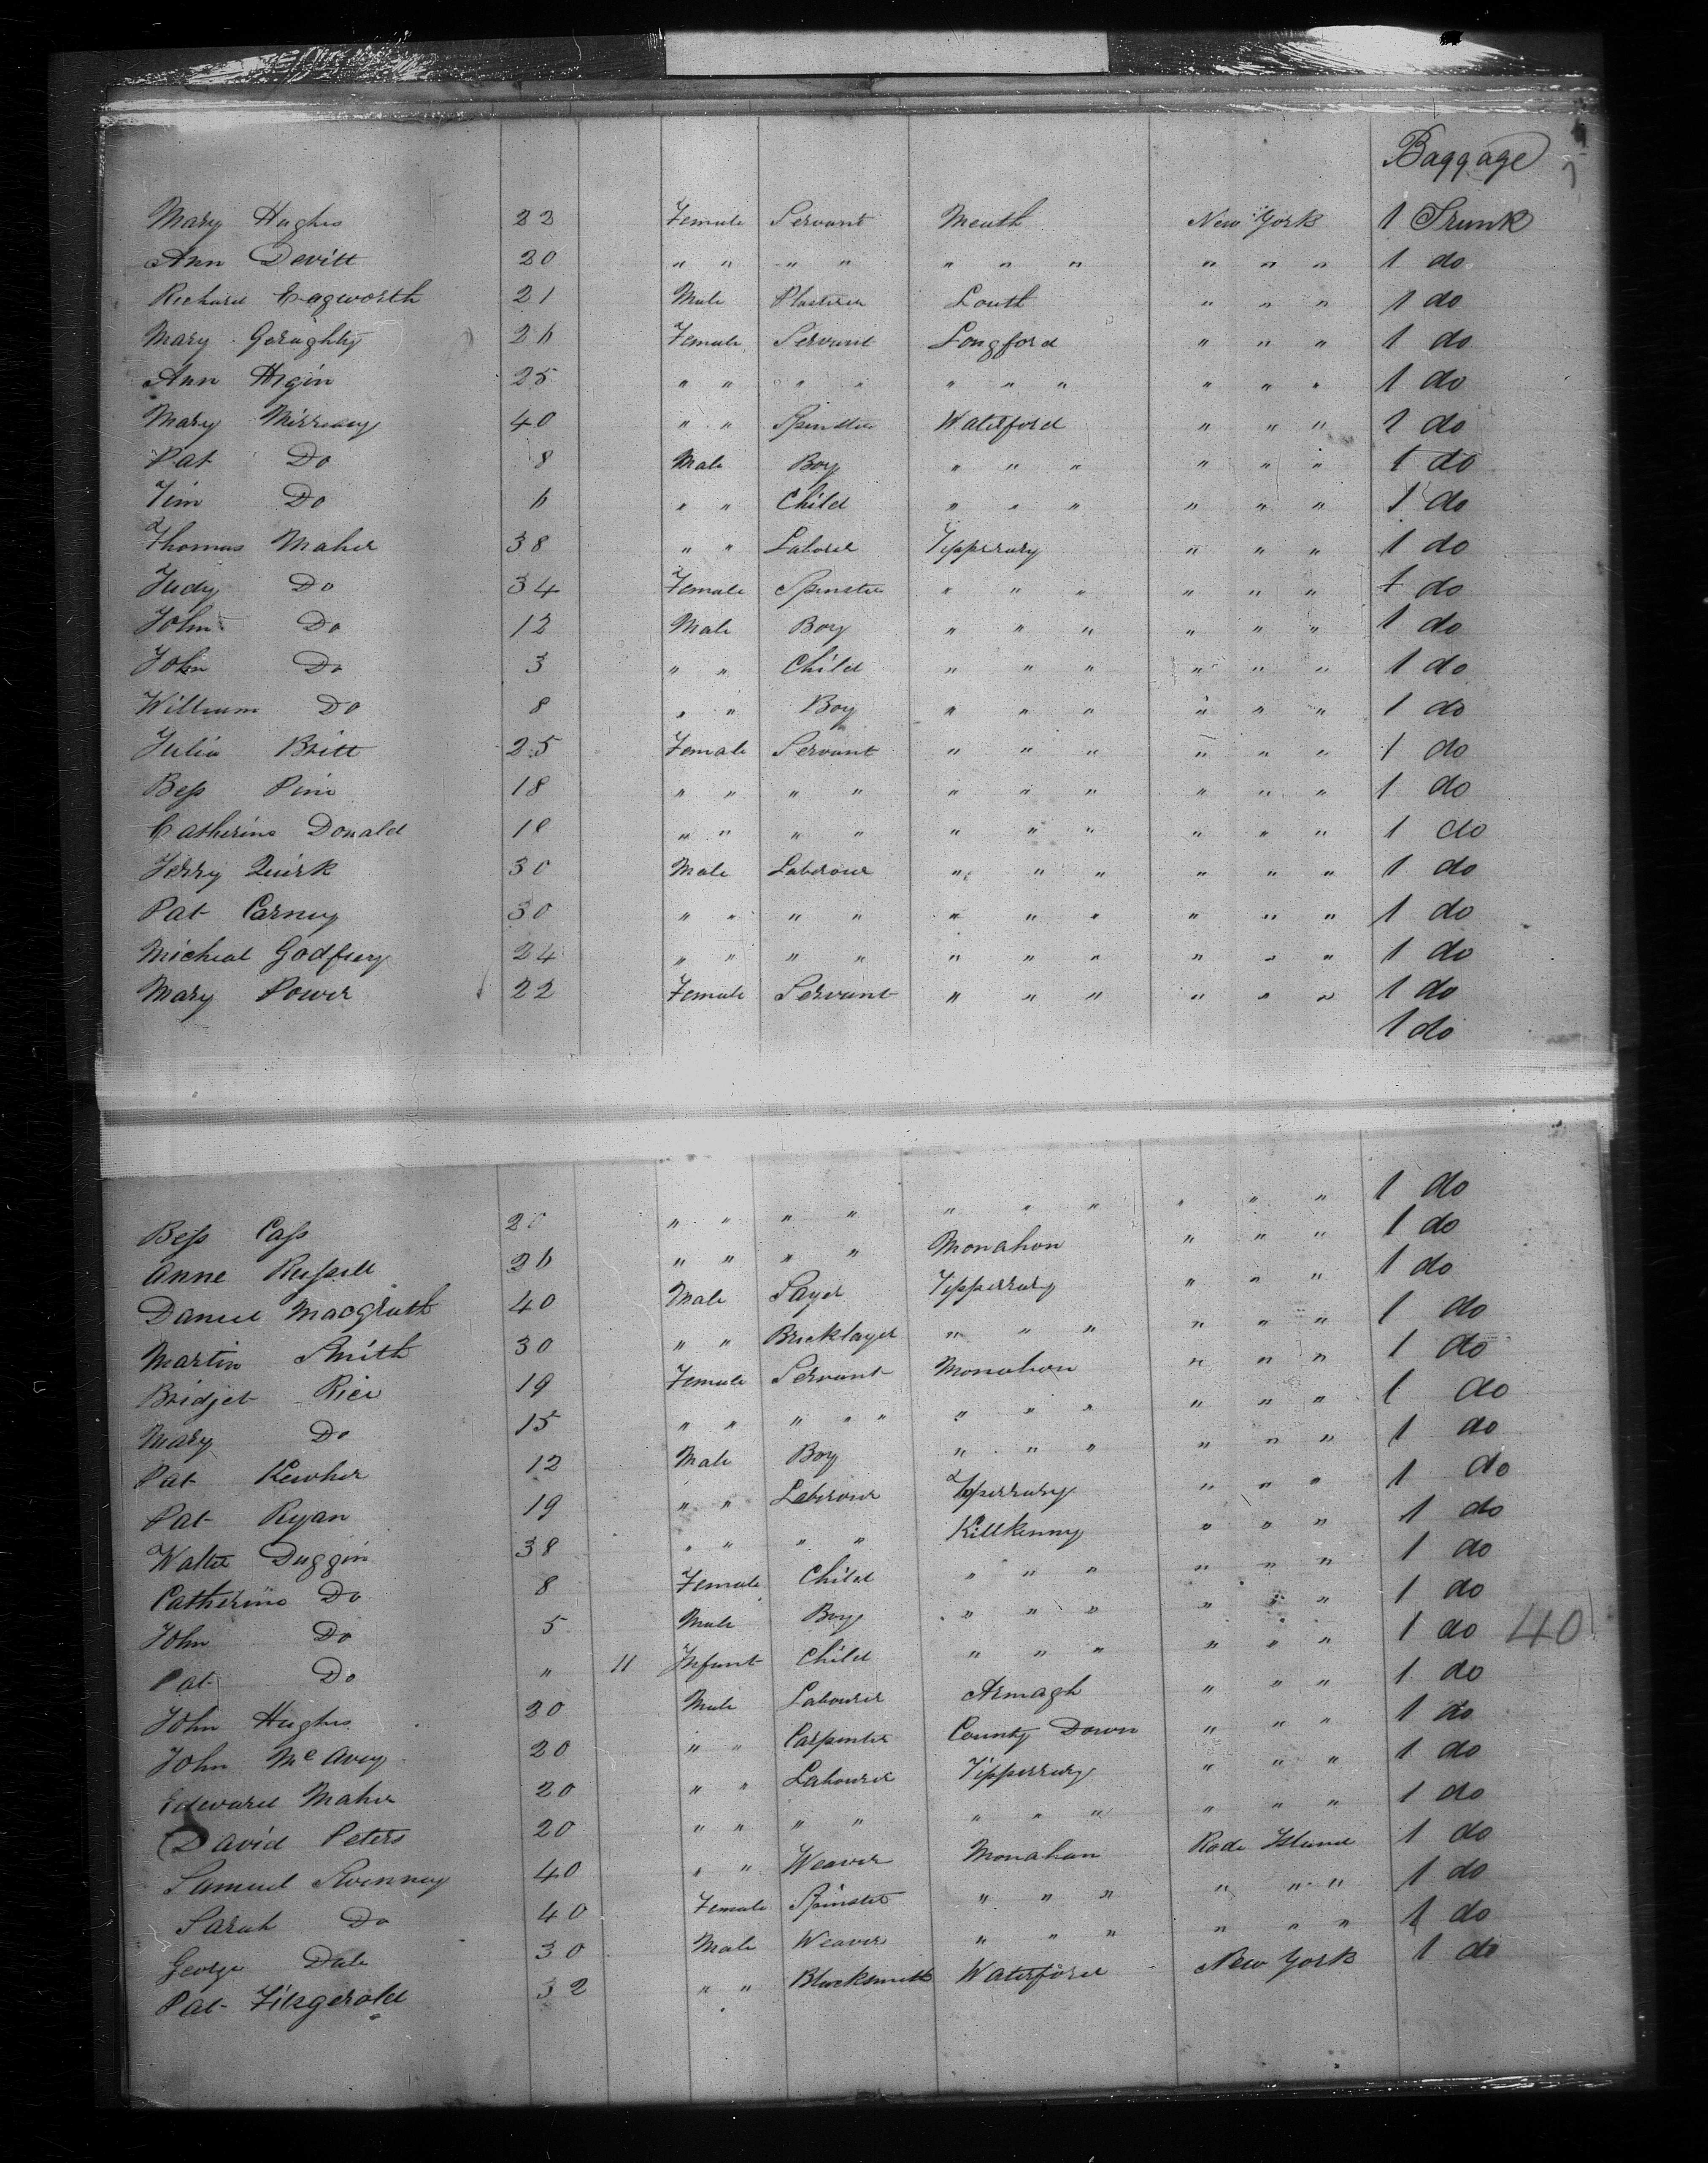 Baggage
Mary Hughs 22 Female Servant Meath New York 1 Trunk
Ann Devitt 20 " " " " " " " " " " 1 do
Richard Eagworth 21 Male Plasterer Louth " " " 1 do
Mary Geraghty 26 Female Servant Longford " " " 1 do
Ann Higin 25 " " " " " " " " " " 1 do
Mary 40 " " Spinster Waterford " " " 1 do
Pat Do 8 Male Boy " " " " " " 1 do
Tim Do 6 " " Child " " " " " " 1 do
Thomas Maher 38 " " Laborer Tipperary " " " 1 do
Judy Do 34 Female Spinster " " " " " " 1 do
John Do 12 Male Boy " " " " " " 1 do
John Do 3 " " Child " " " " " " 1 do
William Do 8 " " Boy " " " " " " 1 do
Julia Britt 25 Female Servant " " " " " " 1 do
Bess Pim 18 " " " " " " " " " " 1 do
Catherine Donald 18 " " " " " " " " " " 1 do
Jerry Quirk 30 Male Laborour " " " " " " 1 do
Pat Carney 30 " " " " " " " " " " 1 do
Micheal Godfrey 24 " " " " " " " " " " 1 do
Mary Power 22 Female Servant " " " " " " 1 do
1 do
Bess Cass 20 " " " " " " " " " " 1 do
Anne Russell 26 " " " " Monahon " " " 1 do
Daniel Macgrath 40 Male Sayer Tipperary " " " 1 do
Martin Smith 30 " " Bricklayer " " " " " " 1 do
Bridjet Rice 19 Female Servant Monahon " " " 1 do
Mary Do 15 " " " " " " " " " " " 1 do
Pat Kewher 12 Male Boy " " " " " " 1 do
Pat Ryan 19 " " Laborour Tipperary " " " 1 do
Walter Duggin 38 " " " " Killkenny " " " 1 do
Catherine Do 8 Female Child " " " " " " 1 do
John Do 5 Male Boy " " " " " " 1 do
Pat Do " 11 Infant Child " " " " " " 1 do 40
John Hughs 20 Male Labourer Armagh " " " 1 do
John McAvey 20 " " Carpenter County Down " " " 1 do
Edward Maher 20 " " Labourer Tipperary " " " 1 do
David Peters 20 " " " " " " " " " " 1 do
Samuel Svenney 40 " " Weaver Monahan Rode Island 1 do
Sarah Do 40 Female Spinster " " " " " " 1 do
George Dale 30 Male Weaver " " " " " " 1 do
Pat Fitzgerald 32 " " Blacksmith Waterford New York 1 do